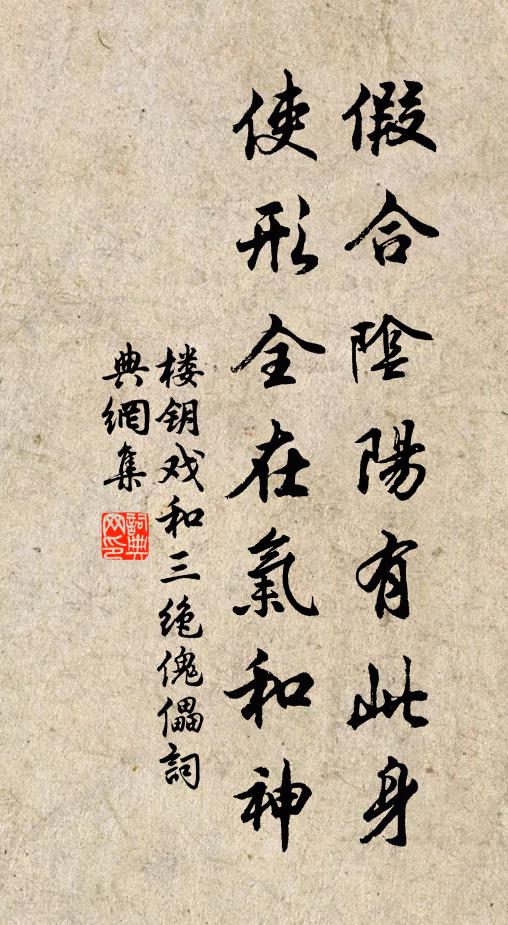 假合陰陽有此身
使形全在氣和神
楼钥戏和三绝傀儡詞
典網集
詞典网印